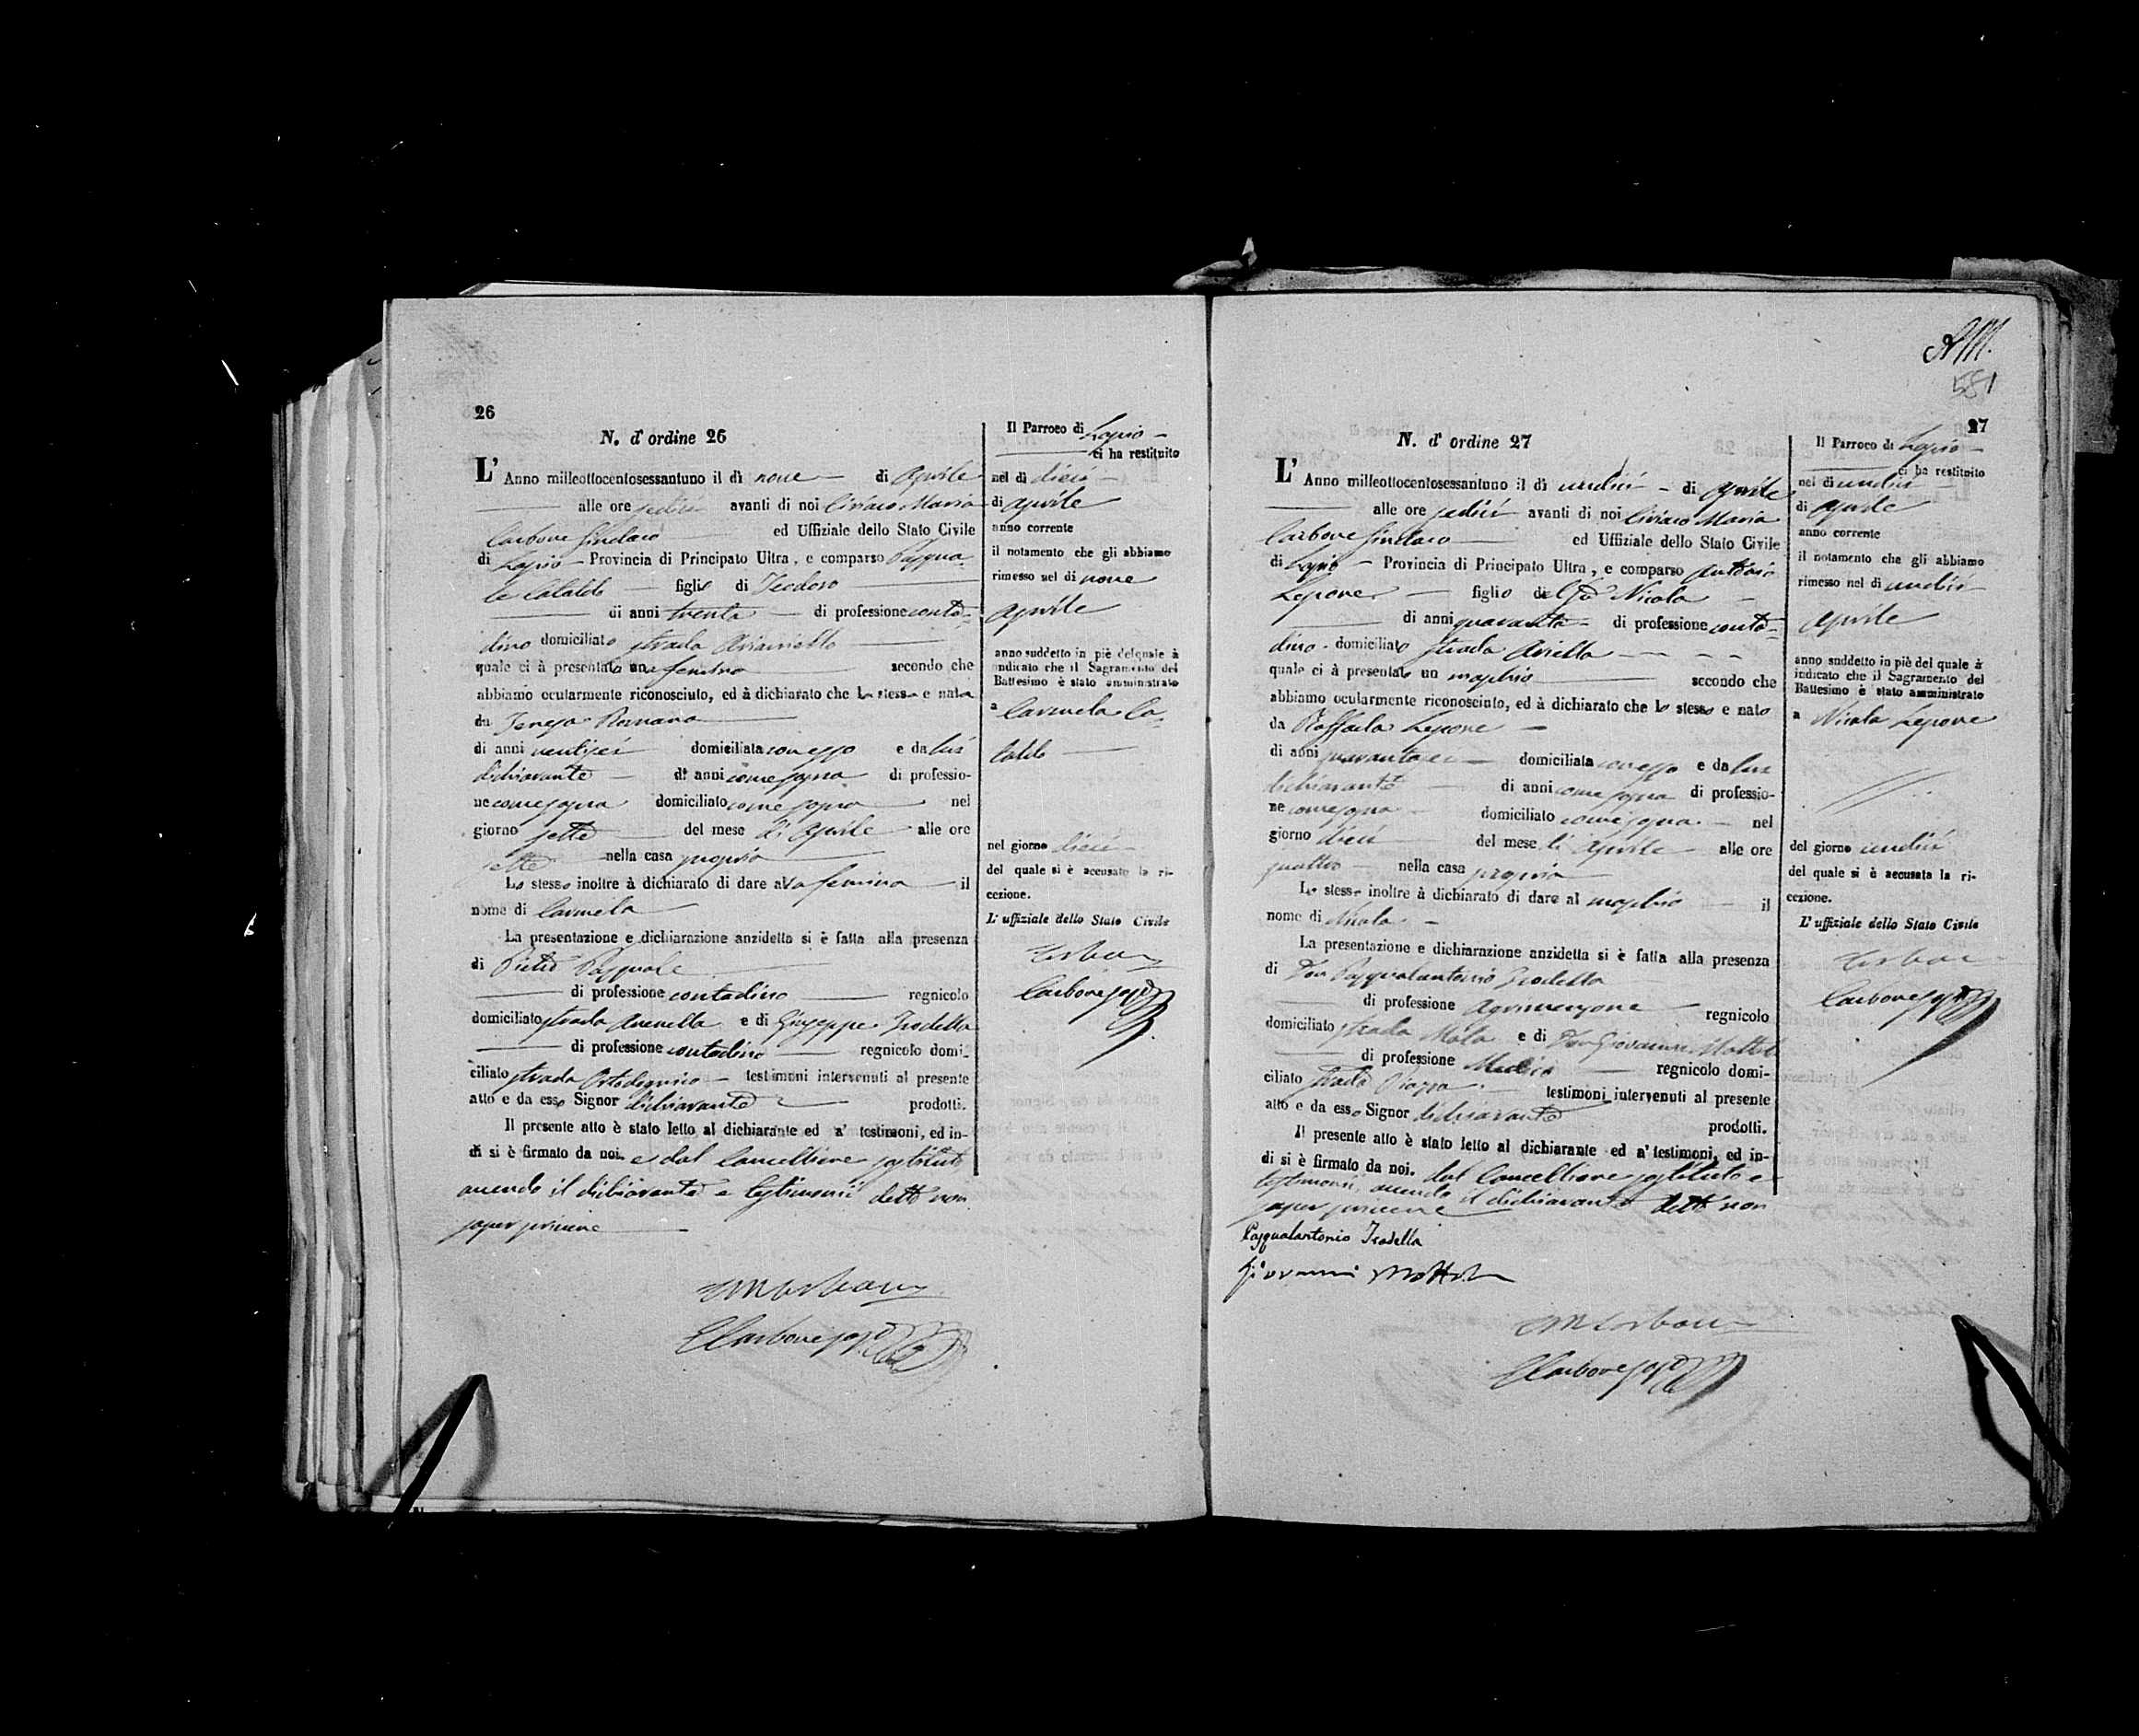 26
N. d' ordine 26
L' Anno milleottocentosessantuno il dì nove di Aprile
alle ore sedici avanti di noi Ciriaco Maria
Carbone Sindaco ed Uffiziale dello Stato Civile
di Lapio Provincia di Principato Ultra, e comparso Pasqua-
le Cataldo figlio di Teodoro
di anni trenta di professione conta-
dino domiciliato strada
quale ci à presentato una femina secondo che
abbiamo ocularmente riconosciuto, ed à dichiarato che la stessa e nata
da Teresa Romano
di anni ventisei domiciliata con esso e da lui
dichiarante di anni come sopra di professio-
ne come sopra domiciliato come sopra nel
giorno sette del mese di Aprile alle ore
sette nella casa propria
Lo stesso inoltre à dichiarato di dare alla femina il
nome di Carmela
La presentazione e dichiarazione anzidetta si è fatta alla presenza
di Pietro Pasquale
di professione contadino regnicolo
domiciliato strada e di Giuseppe Trodella
di professione contadino regnicolo domi-
ciliato strada testimoni intervenuti al presente
atto e da esso Signor dichiarante prodotti.
Il presente atto è stato letto al dichiarante ed a' testimoni, ed in-
di si è firmato da noi. e dal Cancelliere sostituto
avendo il dichiarante e testimonii detto non
saper scrivere
CM Carbone
Carbone
Il Parroco di Lapio
ci ha restituito
nel dì dieci
di Aprile
anno corrente
il notamento che gli abbiamo
rimesso nel di nove
Aprile
anno suddetto in piè del quale à
indicato che il Sagramento del
Battesimo è stato amministrato
a Carmela Ca-
taldo
nel giorno dieci
del quale si è accusata la ri-
cezione.
L' uffiziale dello Stato Civile
Carbone
Carbone
581
27
N. d' ordine 27
L' Anno milleottocentosessantuno il dì undici di Aprile
alle ore sedici avanti di noi Ciriaco Maria
Carbone Sindaco ed Uffiziale dello Stato Civile
di Lapio Provincia di Principato Ultra, e comparso Antonio
Lepore figlio del fu Nicola
di anni quaranta di professione conta-
dino domiciliato strada Ariella
quale ci à presentato un maschio secondo che
abbiamo ocularmente riconosciuto, ed à dichiarato che lo stesso e nato
da Raffaela Lepore
di anni domiciliata con esso e da lui
dichiarante di anni come sopra di professio-
ne come sopra domiciliato come sopra nel
giorno dieci del mese di Aprile alle ore
quattro nella casa propria
Lo stesso inoltre à dichiarato di dare al maschio il
nome di Nicola
La presentazione e dichiarazione anzidetta si è fatta alla presenza
di Don Pasqualantonio Trodella
di professione Agrimenzore regnicolo
domiciliato strada e di Don Giovanni Mottola
di professione Medico regnicolo domi-
ciliato strada Piazza testimoni intervenuti al presente
atto e da esso Signor dichiarante prodotti.
Il presente atto è stato letto al dichiarante ed a' testimoni, ed in-
di si è firmato da noi. dal Cancelliere sostituto e
testimoni, avendo il dichiarante detto non
saper scrivere
Pasqualantonio Trodella
Giovanni Mottola
CM Carbone
Carbone
Il Parroco di Lapio
ci ha restituito
nel dì undici
di Aprile
anno corrente
il notamento che gli abbiamo
rimesso nel di undici
Aprile
anno suddetto in piè del quale à
indicato che il Sagramento del
Battesimo è stato amministrato
a Nicola Lepore
del giorno undici
del quale si è accusata la ri-
cezione.
L' uffiziale dello Stato Civile
Carbone
Carbone